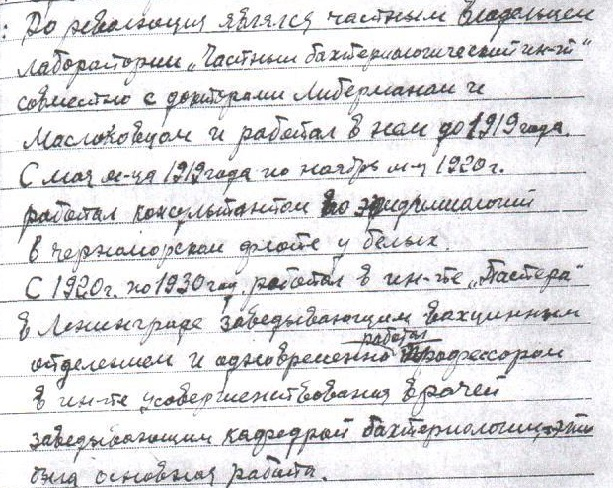 : До революция являлся частным владельцем
лаборатории „Частный бактериологический ин-т"
совместно с докторами Либерманом и
Маслоковцом и работал в нем до 1919 года.
С мая м-ца 1919 года по ноябрь м-ц 1920 г.
работал консультантом по эпидемиологии
в черноморском флоте у белых.
С 1920 г. по 1930 год работал в ин-те „Пастера"
в Ленинграде заведывающим вакцинным
работал
отделением и одновременно профессором
в ин-те усовершенствования врачей
заведывающим кафедрой бактериологии, это
была основная работа.